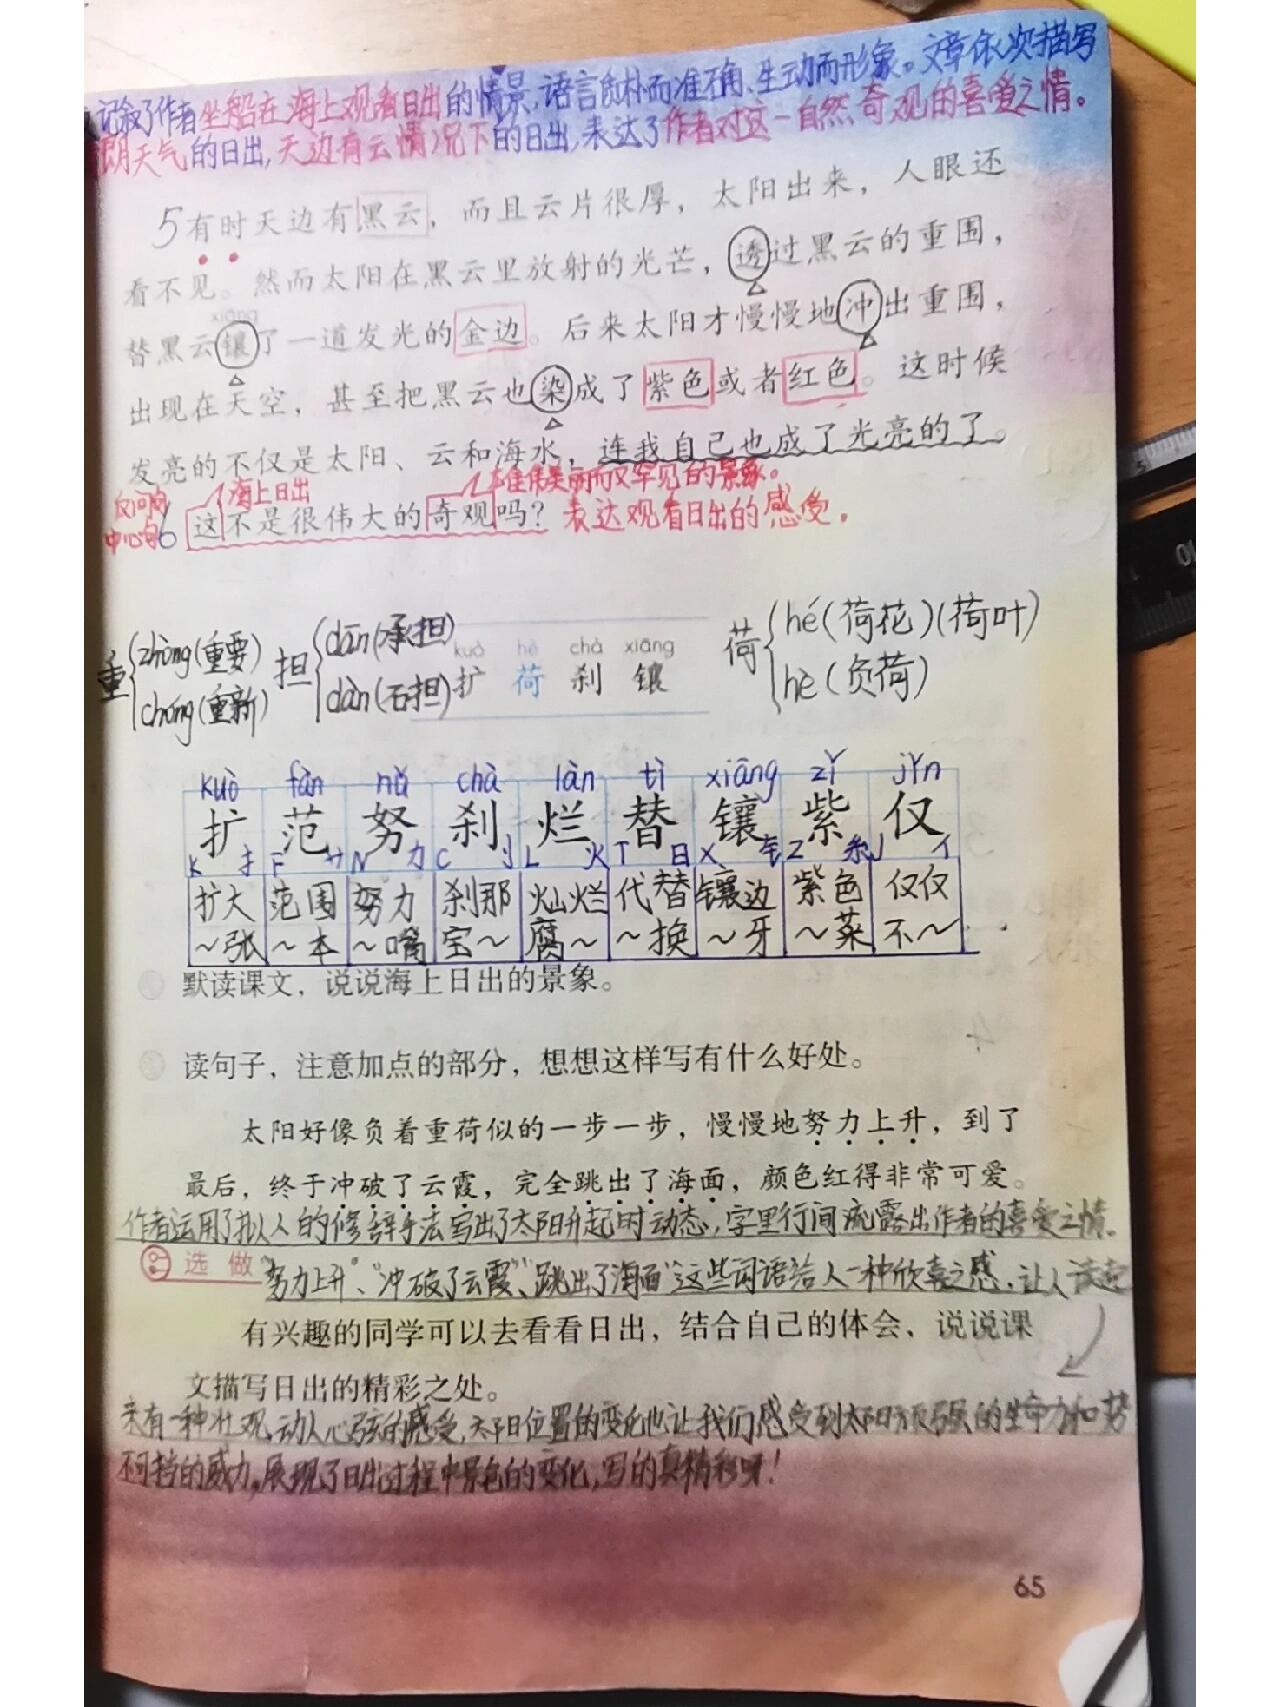 记叙了作者坐船在海上观看日出的情景,语言质朴而准确、生动而形象。文章依次描写
天气的日出,天边有云情况下的日出,表达了作者对这一自然奇观的喜爱之情。
5有时天边有黑云，而且云片很厚，太阳出来，人眼还
看不见。然而太阳在黑云里放射的光芒，透过黑云的重围，
xiāng
替黑云镶了一道发光的金边。后来太阳才慢慢地冲出重围，
出现在天空，甚至把黑云也染成了紫色或者红色。这时候
发亮的不仅是太阳、云和海水，连我自己也成了光亮的了。
反问句 海上日出 雄伟美丽而又罕见的景象。
中心句 6 这不是很伟大的奇观吗？ 表达观看日出的感受。
重 zhòng(重要) chóng(重新)
担 dān(承担) dàn(石担)
kuò hè chà xiāng
扩 荷 刹 镶
荷 hé(荷花)(荷叶) hè(负荷)
kuò fàn nǔ chà làn tì xiāng zǐ jǐn
扩 范 努 刹 烂 替 镶 紫 仅
K 扌 F 艹 N 力 C 刂 L 火 T 日 X 钅 Z 糸 J 亻
扩大 范围 努力 刹那 灿烂 代替 镶边 紫色 仅仅
～张 ～本 ～嘴 宝～ 腐～ ～换 ～牙 ～菜 不～
默读课文，说说海上日出的景象。
读句子，注意加点的部分，想想这样写有什么好处。
太阳好像负着重荷似的一步一步，慢慢地努力上升，到了
最后，终于冲破了云霞，完全跳出了海面，颜色红得非常可爱。
作者运用了拟人的修辞手法写出了太阳升起时动态,字里行间流露出作者的喜爱之情。
选做 "努力上升"、"冲破了云霞"、"跳出了海面"这些词语给人一种欣喜之感,让人读起
有兴趣的同学可以去看看日出，结合自己的体会、说说课
文描写日出的精彩之处。
来有一种壮观,动人心弦的感受,太阳位置的变化也让我们感受到太阳顽强的生命力和势
不可挡的威力,展现了日出过程中景色的变化,写的真精彩呀!
65